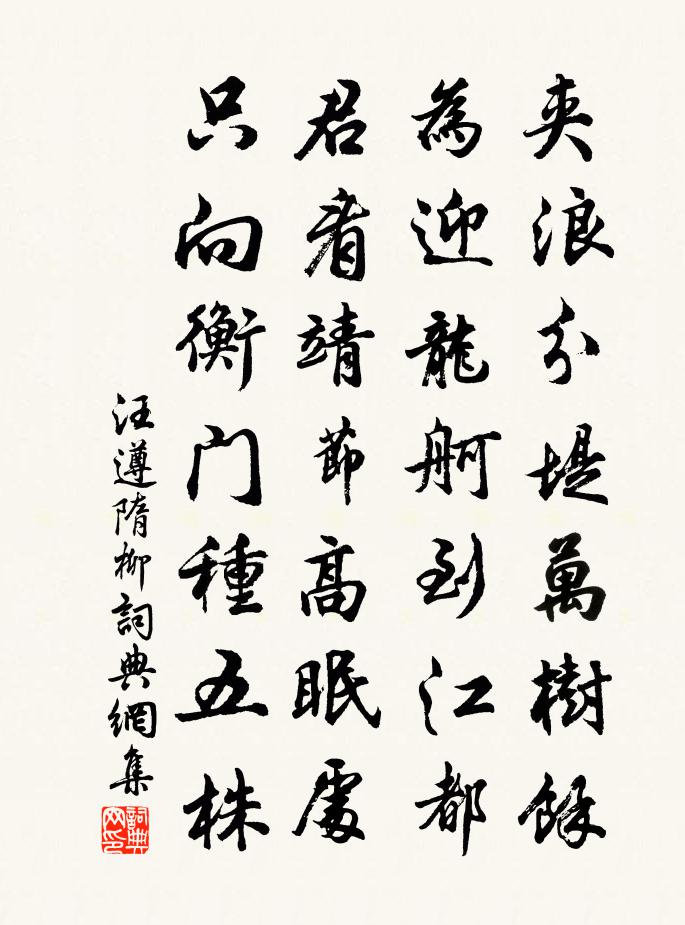 夾浪分堤萬樹餘
為迎龍舸到江都
君看靖節高眠處
只向衡门種五株
汪遵隋柳詞典網集
詞典网印